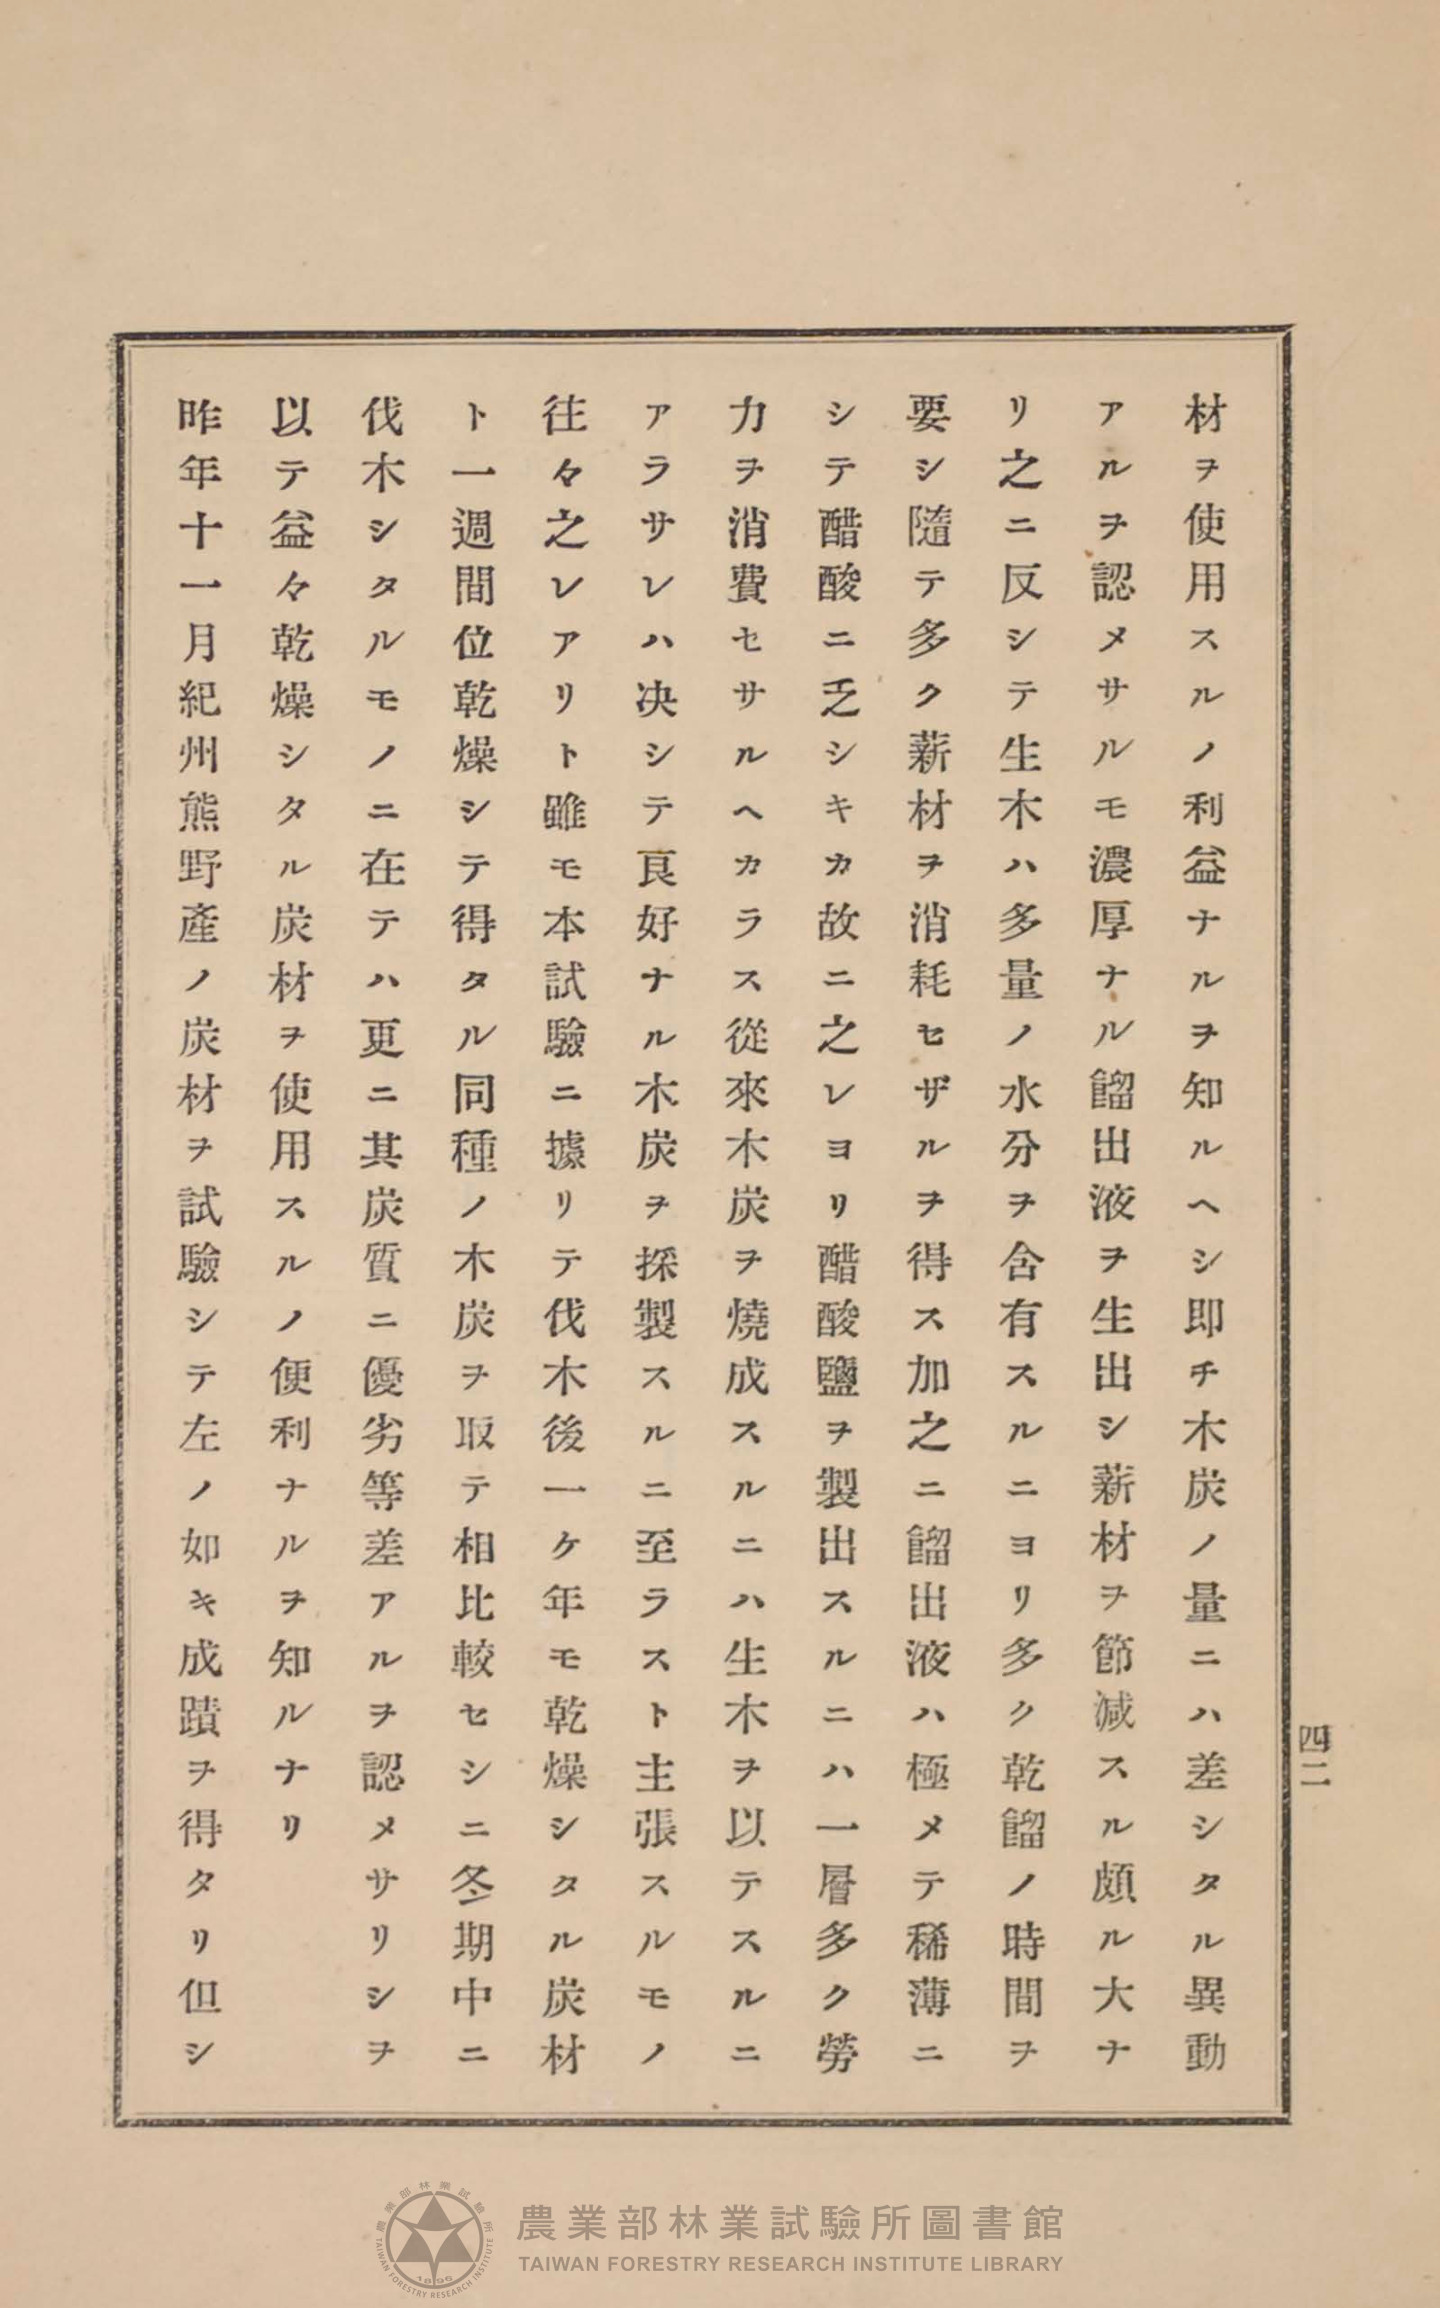 材ヲ使用スルノ利益ナルヲ知ルヘシ即チ木炭ノ量ニハ差シタル異動
アルヲ認メサルモ濃厚ナル餾出液ヲ生出シ薪材ヲ節減スル頗ル大ナ
リ之ニ反シテ生木ハ多量ノ水分ヲ含有スルニヨリ多ク乾餾ノ時間ヲ
要シ隨テ多ク薪材ヲ消耗セザルヲ得ス加之ニ餾出液ハ極メテ稀薄ニ
シテ醋酸ニ乏シキカ故ニ之レヨリ醋酸鹽ヲ製出スルニハ一層多ク勞
力ヲ消費セサルヘカラス從來木炭ヲ燒成スルニハ生木ヲ以テスルニ
アラサレハ决シテ良好ナル木炭ヲ採製スルニ至ラスト主張スルモノ
往々之レアリト雖モ本試驗ニ據リテ伐木後一ケ年モ乾燥シタル炭材
ト一週間位乾燥シテ得タル同種ノ木炭ヲ取テ相比較セシニ冬期中ニ
伐木シタルモノニ在テハ更ニ其炭質ニ優劣等差アルヲ認メサリシヲ
以テ益々乾燥シタル炭材ヲ使用スルノ便利ナルヲ知ルナリ
昨年十一月紀州熊野產ノ炭材ヲ試驗シテ左ノ如キ成蹟ヲ得タリ但シ
四二
農業部林業試驗所圖書館
TAIWAN FORESTRY RESEARCH INSTITUTE LIBRARY
農業部林業試驗所
TAIWAN FORESTRY RESEARCH INSTITUTE
1896